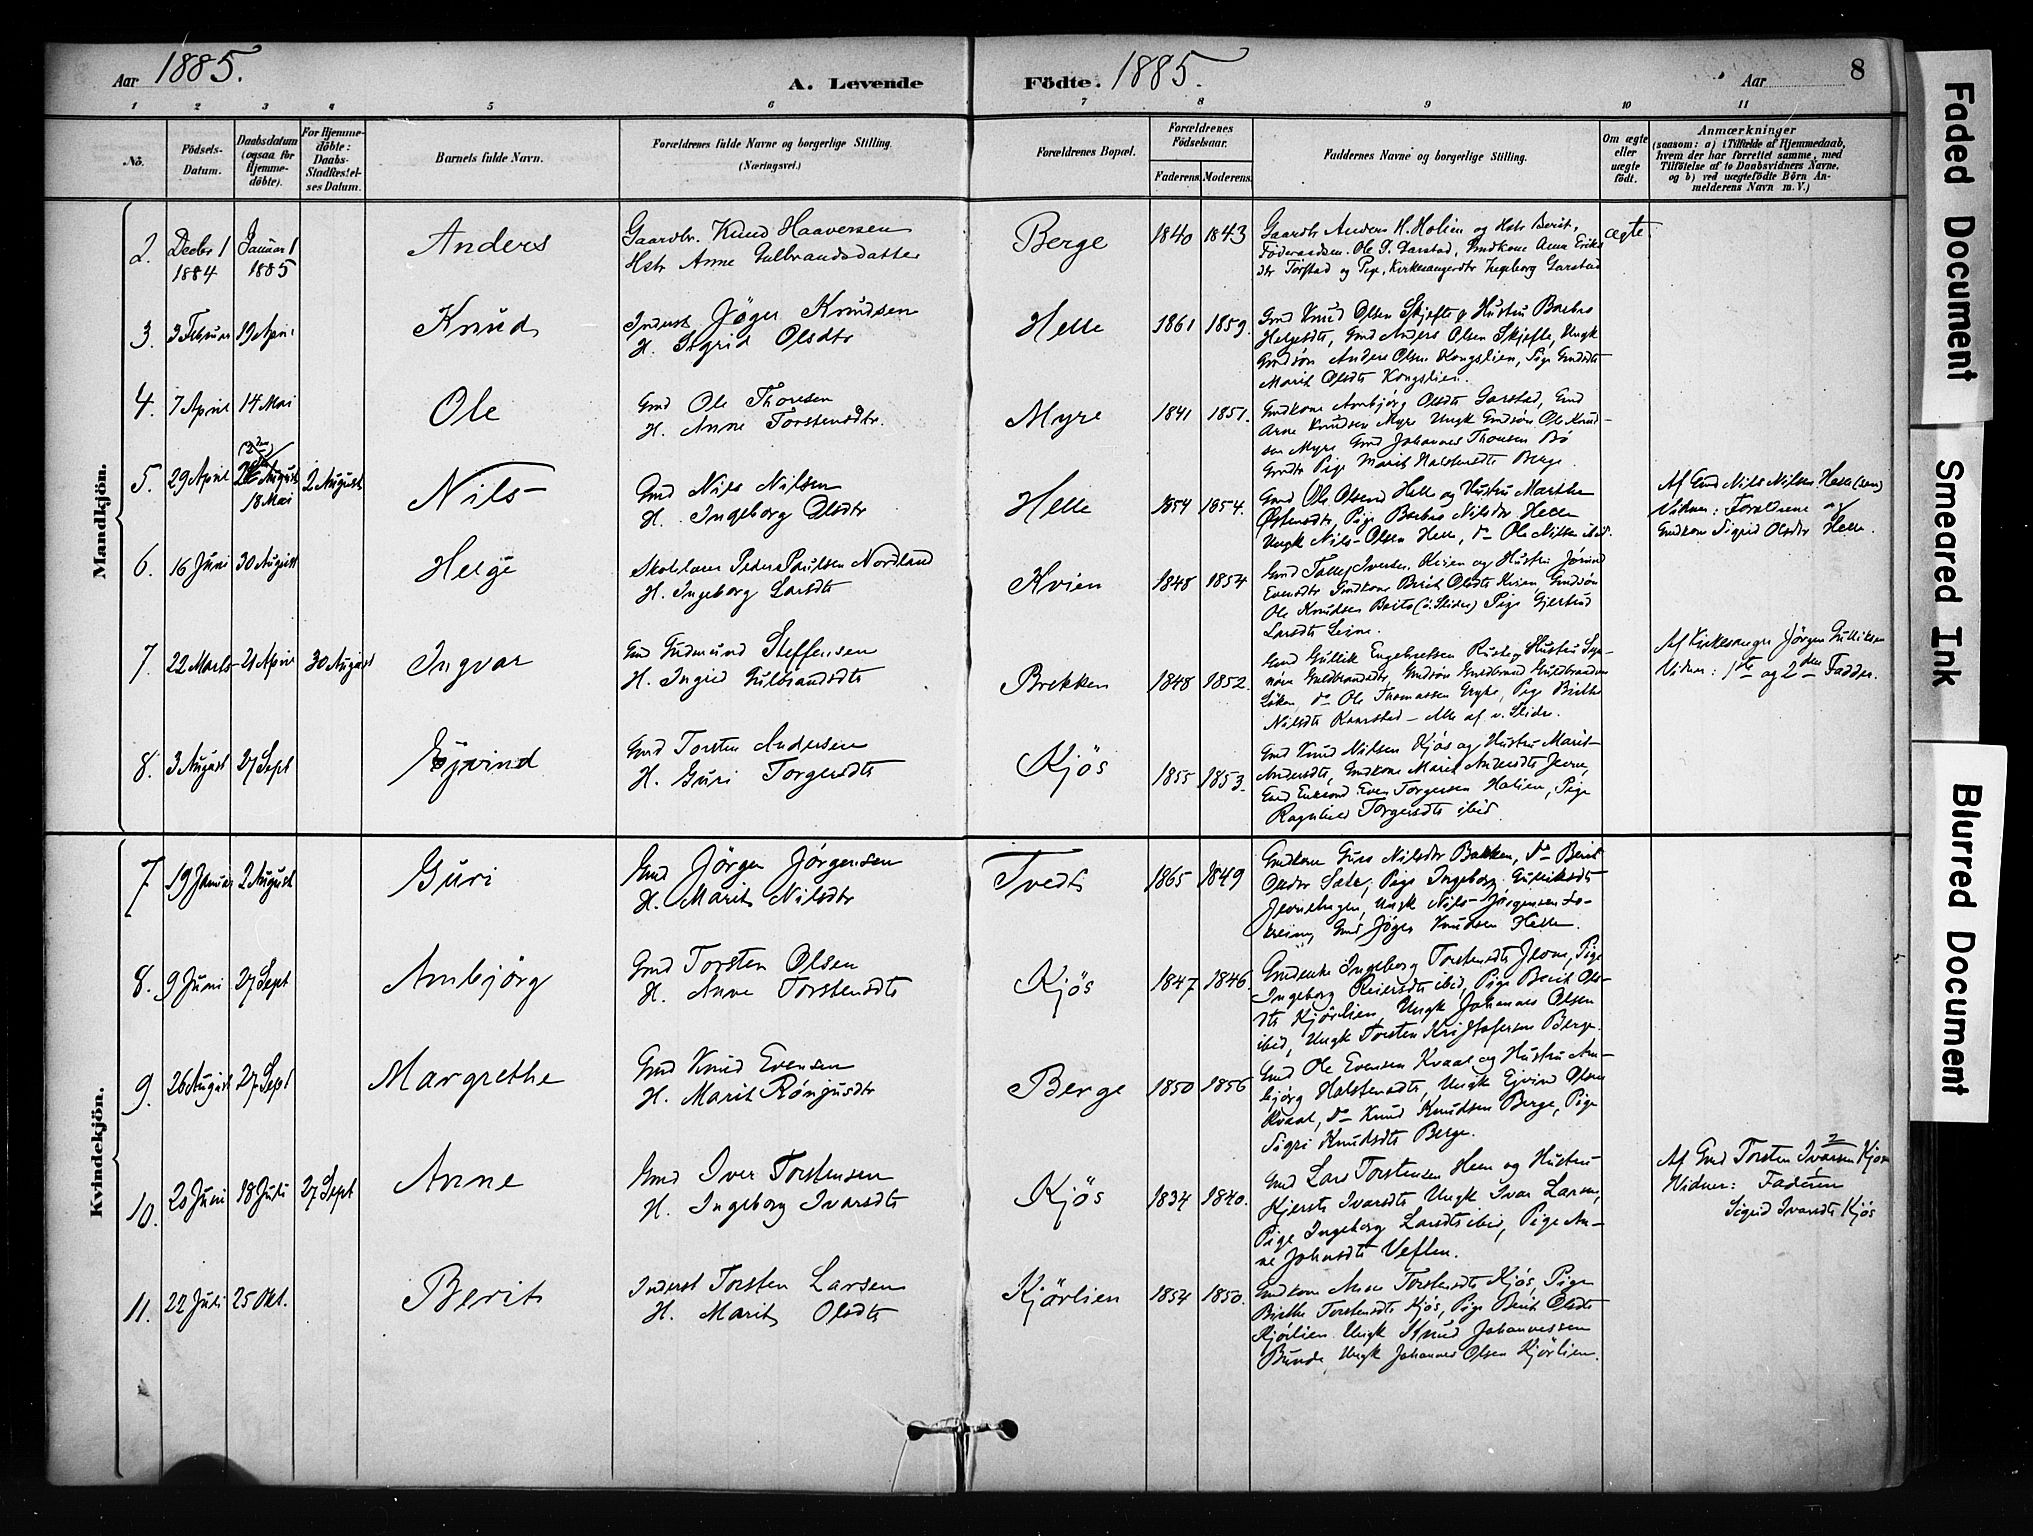 Aar 1885.
A. Levende Födte. 1885.
Aar
8
1 2 3 4 5 6 7 8 9 10 11
No.
Födsels-Datum.
Daabsdatum (ogsaa for Hjemme-döbte).
For Hjemme-döbte: Daabs-Stadfæstel-ses Datum.
Barnets fulde Navn.
Forældrenes fulde Navne og borgerlige Stilling. (Næringsvei.)
Forældrenes Bopæl.
Forældrenes Födselsaar.
Faderens. Moderens.
Faddernes Navne og borgerlige Stilling.
Om ægte eller uægte födt.
Anmærkninger
(saasom: a) i Tilfælde af Hjemmedaab, hvem der har forrettet samme, med Tilföielse af to Daabsvidners Navne, og b) ved uægtefödte Börn An-melderens Navn m. V.)
Mandkjön.
2. Decbr 1 1884 Januar 1 1885 Anders
Gaardbr. Knud Haaversen
Hstr Anne Gulbrandsdatter
Berge 1840 1843
Gaardbr Anders H. Holien og Hstr Berit,
Ole G. Garstad, Gmdkone Anna Eriks
dtr Torstad og Pige, Kirkesangerdtr Ingeborg Garstad
ægte
3. 3 Februar 19 April Knud
Inderst Jöger Knudsen
H. Sigrid Olsdtr
Helle 1861 1859.
Gmd Knud Olsen Skjefte og Hustru Barbro
Helgesdtr, Gmd Anders Olsen Skjefte, Ungk
Gmdsøn Anders Olsen Kongslien, Pige Gmdsdtr
Marit Olsdtr Kongslien.
4. 7 April 14 Mai Ole
Gmd Ole Thoresen
H. Anne Torstensdtr.
Myre 1841 1851.
Gmdkone Arnbjörg Olsdtr Garstad, Gmd
Arne Knudsen Myre Ungk Gmdsön Ole Knud-
sen Myre Gmd Johannes Thoresen Bø
Gmdtr Pige Marit Halstensdtr Berge.
5. 29 April August 18 Mai 2 August Nils
Gmd Nils Nilsen
H. Ingeborg Olsdtr
Helle 1854 1854.
Gmd Ole Olsen Helle og Hustru Marthe
Østensdtr, Pige Barbro Nilsdtr Helle
Ungk Nils Olsen Helle, do Ole Nilsen ibid.
Af Gmd Nils Nilsen Helle
Vidner: Forældrene og
Gmdkone Sigrid Olsdtr Helle.
6. 16 Juni 30 August Helge
Skolelærer Peder Poulsen Nordland
H. Ingeborg Larsdtr
Kvien 1848 1854
Gmd Tollef Iversen Kvien og Hustru Jörind
Evensdtr Gmdkone Berit Olsdtr Kvien, Gmdsøn
Ole Knudsen Beito (ø. Slidre) Pige Gjertrud
Larsdtr Leine.
7. 22 Marts 21 April 30 August Ingvar
Gmd Gudmund Steffensen
H. Ingrid Gulbrandsdtr
Brekken 1848 1852.
Gmd Gullik Engebretsen Ruste og Hustru
Guldbrandsdtr, Gmdsøn Guldbrand Guldbrandsen
Løken, do Ole Thomassen Pige Birthe
Nilsdtr Kaarstad – Alle af v. Slidre.
Af Kirkesanger Jörgen Gulliksen
Vidner: 1ste og 2den Fadder.
8. 3 August 27 Sept Eyvind
Gmd Torsten Andersen
H. Guri Torgersdtr
Kjös 1855 1853.
Gmd Knud Nilsen Kjös og Hustru Marit
Andersdtr, Gmdkone Marit Andersdtr
Even Torgersen Holien, Pige
Ragnhild Torgersdtr ibid.
Kvindekjön.
7 19 Januar 2 August Guri
Gmd Jörgen Jörgensen
H. Marit Nilsdtr
Tvedt 1865 1849
Gmdkone Guri Nilsdtr Bakken, do Berit
Olsdtr Pige Ingeborg Gulliksdtr
Ungk Nils Jörgensen
Gmd Jöger Knudsen Helle.
8. 9 Juni 27 Sept Arnbjörg
Gmd Torsten Olsen
H. Anne Torstensdtr
Kjös 1847 1846.
Gmdenke Ingeborg Torstensdtr Pige
Ingeborg Reiersdtr ibid, Pige Berit Ols-
dtr Kjörlien Ungk Johannes Olsen
ibid, Ungk Torsten Kristofersen Berge.
9. 26 August 27 Sept Margrethe
Gmd Knud Evensen
H. Marit
Berge 1850 1856
Gmd Ole Evensen Kvaal og Hustru Arn-
björg Halstensdtr, Ungk Ejvind Olsen
Kvaal, do Knud Knudsen Berge, Pige
Sigri Knudsdtr Berge.
10. 20 Juni 18 Juli 27 Sept Anne
Gmd Iver Torstensen
H. Ingeborg Ivarsdtr
Kjös 1834 1840.
Gmd Lars Torstensen Heen og Hustru
Kjersti Ivarsdtr Ungk Ivar Larsen,
Pige Ingeborg Larsdtr ibid, Pige An-
ne Johnsdtr Veflen.
Af Gmd Torsten Ivarsen Kjös
Vidner: Faderen
Sigrid Ivarsdtr Kjös
11. 22 Juli 25 Okt. Berit
Inderst Torsten Larsen
H. Marit Olsdtr
Kjörlien 1854 1850.
Gmdkone Anne Torstensdtr Kjös, Pige
Birthe Torstensdtr Kjös, Pige Berit Olsdtr
Kjörlien Ungk Knud Johannessen
Bunde, Ungk Johannes Olsen Kjörlien.
Faded Document
Smeared Ink
Blurred Document